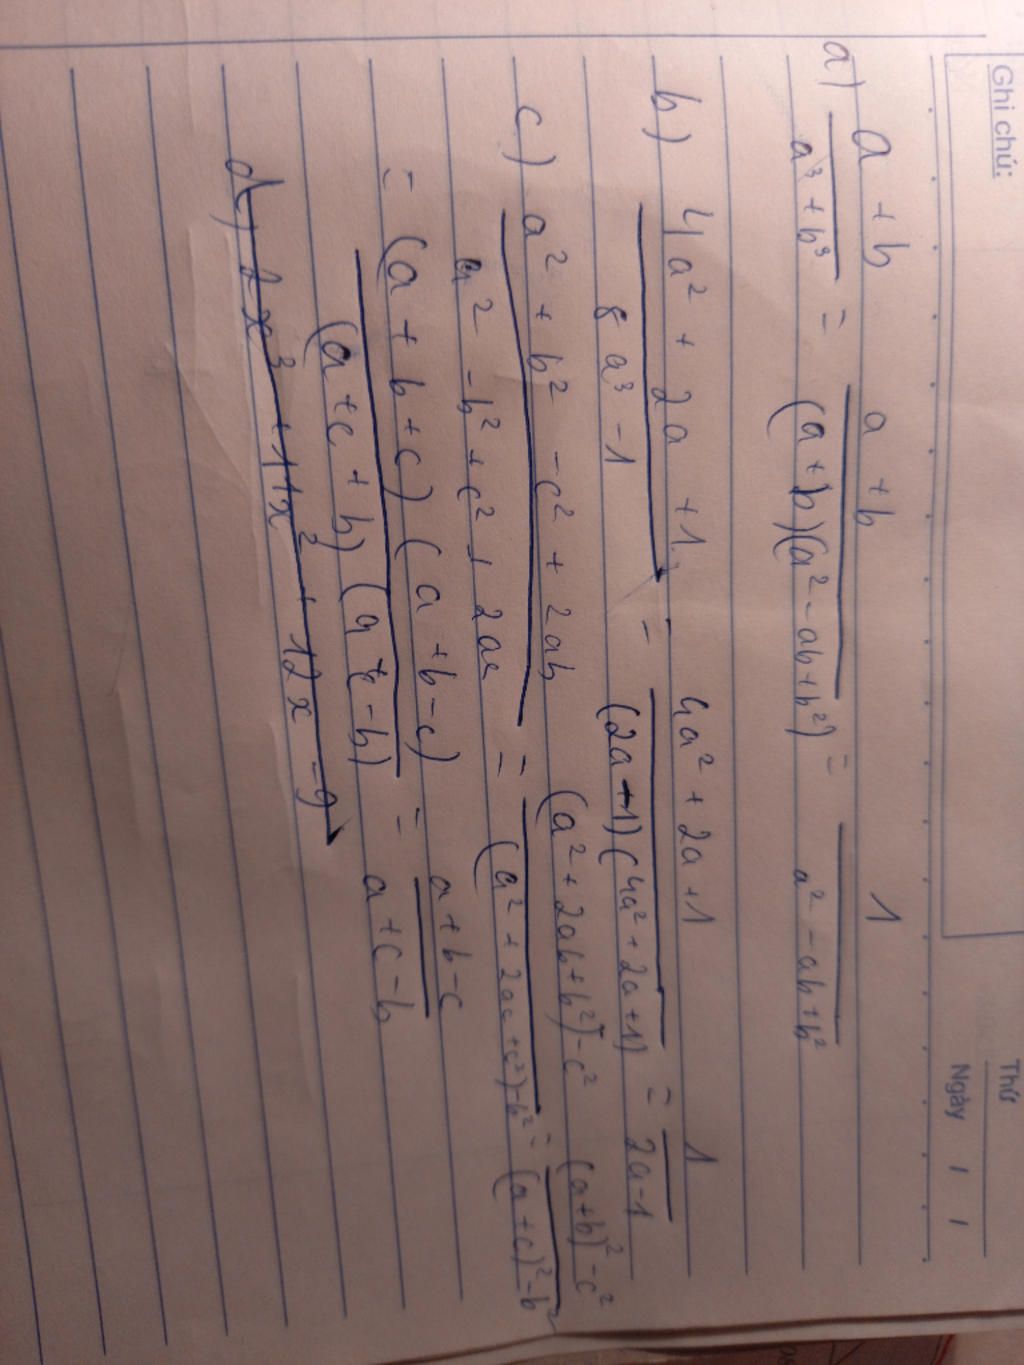 Ghi chú:
Thứ
Ngày / /
a) a + b / a³ + b³ = a + b / (a + b)(a² - ab + b²) = 1 / a² - ab + b²
b) 4a² + 2a + 1 / 8a³ - 1 = 4a² + 2a + 1 / (2a + 1)(4a² + 2a + 1) = 1 / 2a - 1
c) a² + b² - c² + 2ab / a² - b² + c² + 2ac = (a² + 2ab + b²) - c² / (a² + 2ac + c²) - b² = (a + b)² - c² / (a + c)² - b²
= (a + b + c)(a + b - c) / (a + c + b)(a + c - b) = a + b - c / a + c - b